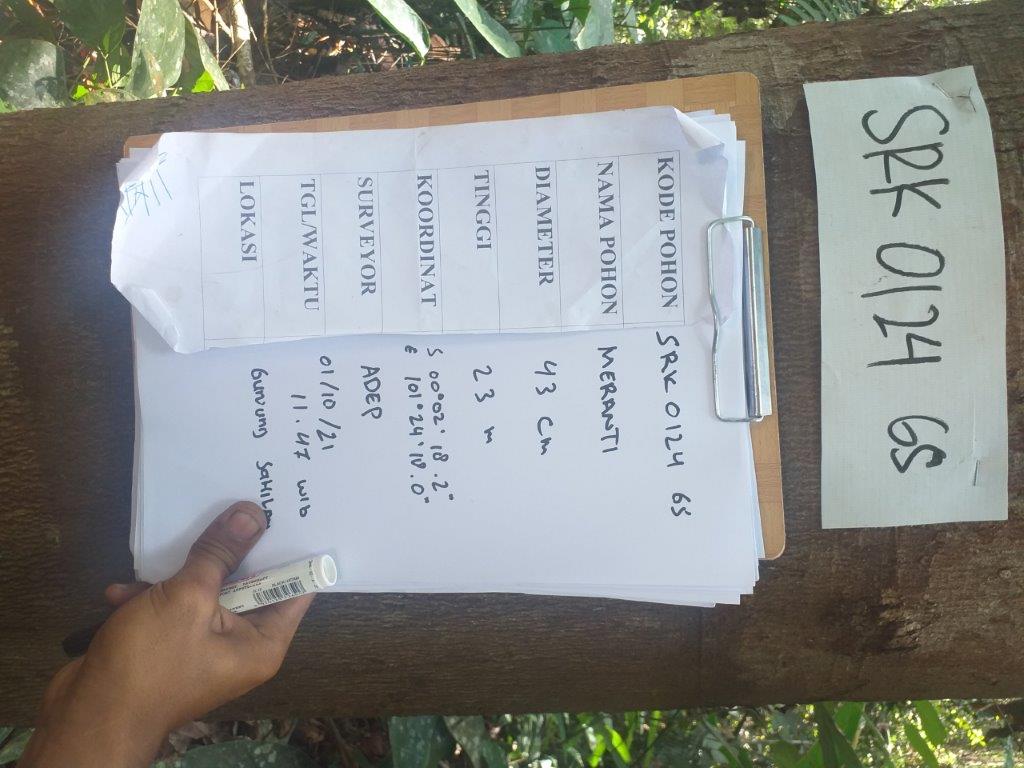 SRK 0124 GS
KODE POHON SRK 0124 GS
NAMA POHON MERANTI
DIAMETER 43 cm
TINGGI 23 m
KOORDINAT S 00°02' 18.2"
E 101°24'18.0"
SURVEYOR ADEP
TGL/WAKTU 01/10/21
11.47 WIB
LOKASI Gunung